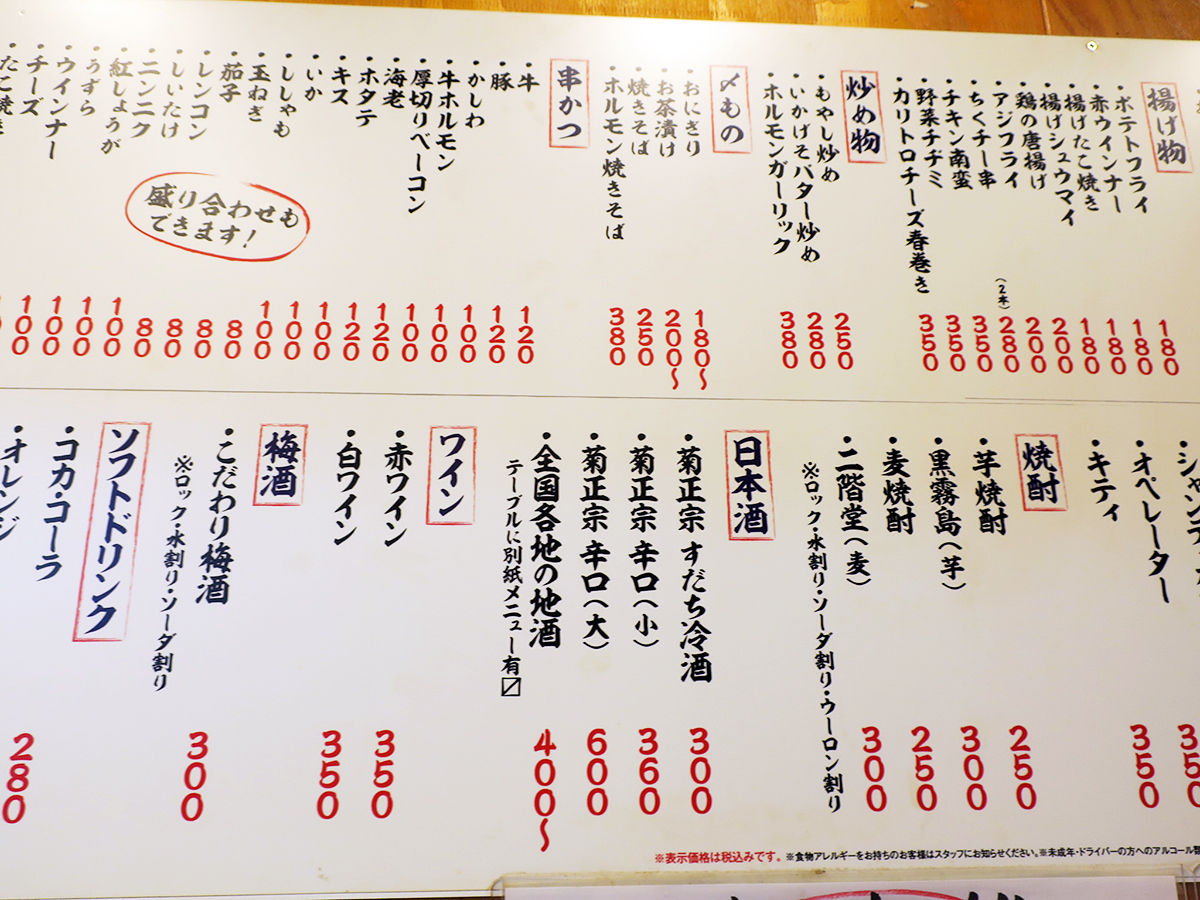 揚げ物
・ポテトフライ 180
・赤ウインナー 180
・揚げたこ焼き 180
・揚げシュウマイ 200
・鶏の唐揚げ 200
・アジフライ (2本) 280
・ちくチー串 350
・チキン南蛮 350
・野菜チヂミ 350
・カリトロチーズ春巻き
炒め物
・もやし炒め 250
・いかげそバター炒め 280
・ホルモンガーリック 380
〆もの
・おにぎり 180〜
・お茶漬け 200〜
・焼きそば 250
・ホルモン焼きそば 380
串かつ
・牛 120
・豚 120
・かしわ 100
・牛ホルモン 100
・厚切りベーコン 100
・海老 120
・ホタテ 120
・キス 100
・いか 100
・ししゃも 100
・玉ねぎ 80
・茄子 80
・レンコン 80
・しいたけ 80
・ニンニク 100
・紅しょうが 100
・うずら 100
・ウインナー 100
・チーズ
たこ焼き
盛り合わせも
できます!
・オペレーター 350
・キティ 350
焼酎
・芋焼酎 250
・黒霧島(芋) 300
・麦焼酎 250
・二階堂(麦) 300
※ロック・水割り・ソーダ割り・ウーロン割り
日本酒
・菊正宗 すだち冷酒 300
・菊正宗 辛口(小) 360
・菊正宗 辛口(大) 600
・全国各地の地酒 400〜
テーブルに別紙メニュー有〼
ワイン
・赤ワイン 350
・白ワイン 350
梅酒
・こだわり梅酒 300
※ロック・水割り・ソーダ割り
ソフトドリンク
・コカ・コーラ 280
・オレンジ
※表示価格は税込みです。※食物アレルギーをお持ちのお客様はスタッフにお知らせください。※未成年・ドライバーの方へのアルコール類